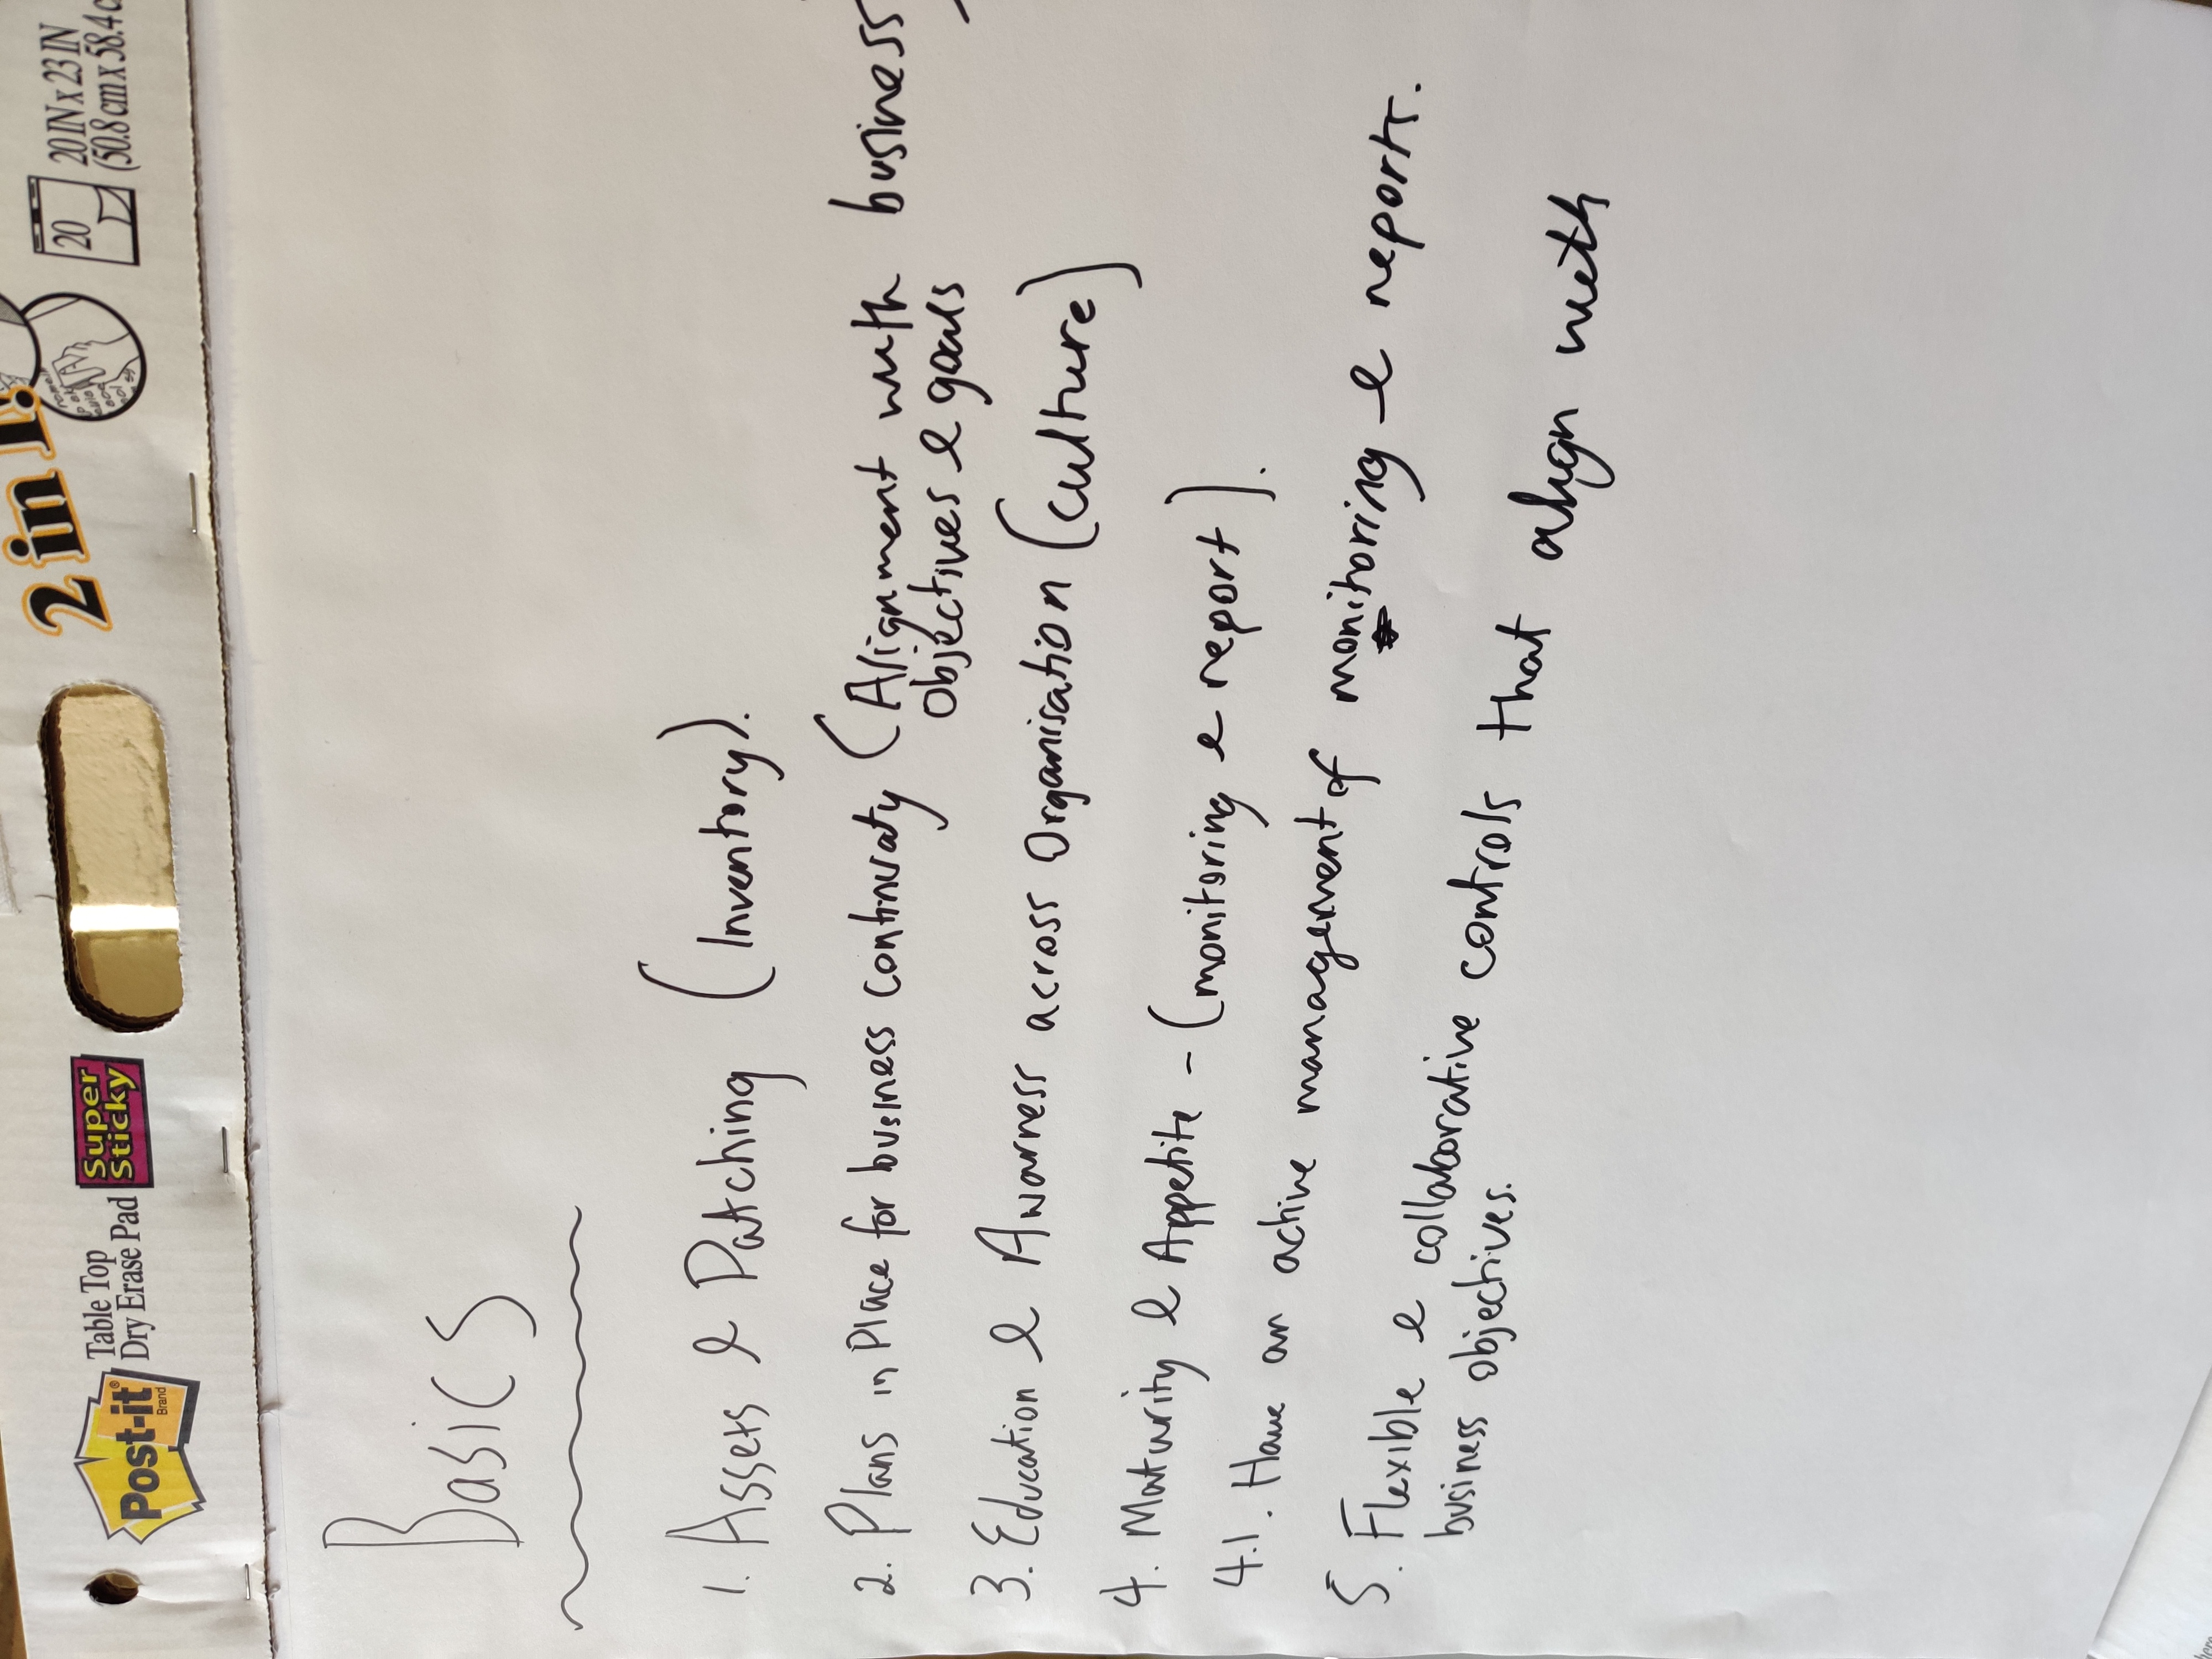 Post-it®
Brand
Table Top
Dry Erase Pad
Super
Sticky
2 in 1!
20
20 IN x 23 IN
(50.8 cm x 58.4 c
Basics
1. Assets & Patching (Inventory).
2. Plans in Place for business continuaty (Alignment with business
objectives & goals
3. Education & Awarness across Organisation (culture)
4. Maturity & Appetite - (monitoring & report).
4.1. Have an active management of monitoring & reports.
5. Flexible & collaborative controls that align with
business objectives.